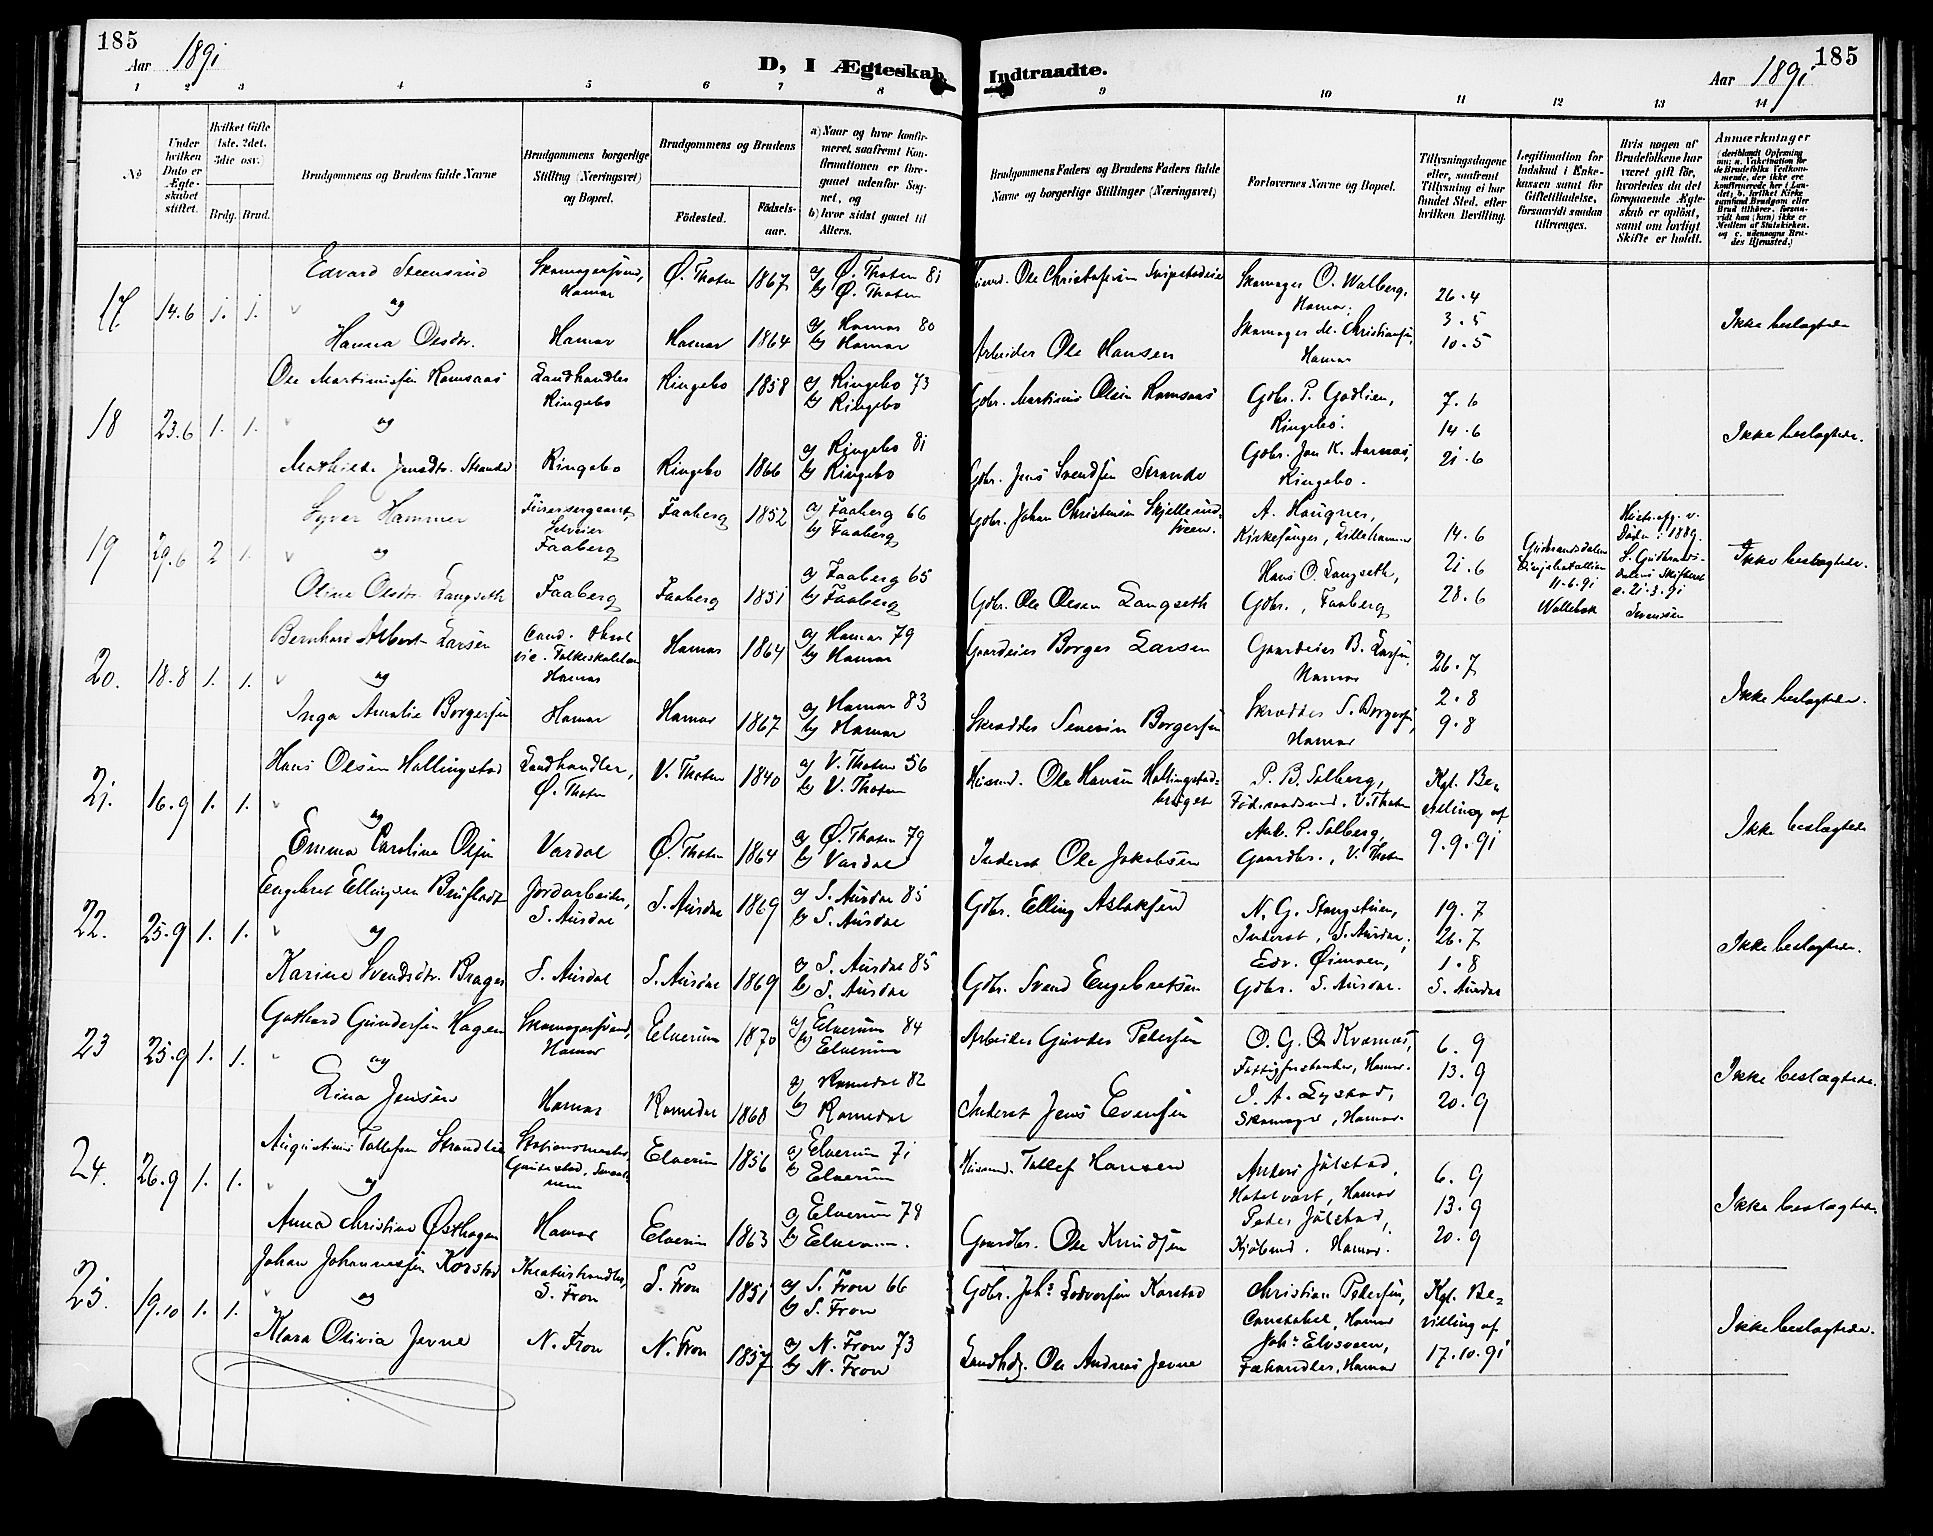 185
Aar 1891
D, I Ægteskab Indtraadte.
Aar 1891
185
1 2 3 4 5 6 7 8 9 10 11 12 13 14
No
Under hvilken Dato er Ægteskabet stiftet.
Hvilket Gifte (1ste. 2det. 3die osv.)
Brdg. Brud.
Brudgommens og Brudens fulde Navne
Brudgommens borgerlige Stilling (Næringsvei) og Bopæl.
Brudgommens og Brudens
Födested.
Födselsaar.
a) Naar og hvor konfirmeret, saafremt Konfirmationen er foregaaet udenfor Sognet, og
b) hvor sidst gaaet til Alters.
Brudgommens Faders og Brudens Faders fulde Navne og borgerlige Stillinger (Næringsvei)
Forlovernes Navne og Bopæl.
Tillysningsdagene eller, saafremt Tillysning ei har fundet Sted, efter hvilken Bevilling.
Legitimation for Indskud i Enkekassen samt for Giftetilladelse, forsaavidt saadan tiltrænges.
Hvis nogen af Brudefolkene har været gift för, hvorledes da det foregaaende Ægteskab er oplöst, samt om lovligt Skifte er holdt.
Anmærkninger
17. 14.6 1. 1.
Edvard Steensrud
Skomagersvend, Hamar
Ø. Thoten 1867
a) Ø. Thoten 81
b) Ø. Thoten
Husmd. Ole Christofersen
Skomager O. Walberg, Hamar.
26.4
og
Hanna Olsdr.
Hamar Hamar 1864
a) Hamar 80
b) Hamar
Arbeider Ole Hansen
Skomager M. Christiansen, Hamar
3.5
10.5
Ikke beslægtede
18 23.6 1. 1.
Ole Martiniussen Romsaas
Landhandler Ringebo
Ringebo 1858
a) Ringebo 73
b) Ringebo
Gdbr. Martinus Olsen Romsaas
Gdbr. P. Godlien, Ringebo.
7.6
og
14.6
Mathilde Jensdr. Strande
Ringebo Ringebo 1866
a) Ringebo 81
b) Ringebo
Gdbr. Jens Svendsen Strande
Gdbr. Jon K. Aarnæs, Ringebo.
21.6
Ikke beslægtede.
19 29.6 2 1.
Syver Hammer
Faaberg
Faaberg 1852
a) Faaberg 66
b) Faaberg
Gdbr. Johan Christensen
A. Haugner, Kirkesanger, Lillehammer
14.6
og
21.6
Gudbrandsdalens
11.6.91
Hustr. afg. v. Døden i 1889.
S. Gudbrandsdalens Skifteret
21.3.91
Olina Olsdr. Langseth
Faaberg Faaberg 1851
a) Faaberg 65
b) Faaberg
Gdbr. Ole Olsen Langseth
Hans O. Langseth, Gdbr., Faaberg
28.6
Ikke beslægtede.
20. 18.8 1. 1.
Bernhard Albert Larsen
Hamar
Hamar 1864
a) Hamar 79
b) Hamar
Gaardeier Borger Larsen
Gaardeier B. Larsen, Hamar
26.7
og
2.8
Inga Amalie Borgersen
Hamar Hamar 1867
a) Hamar 83
b) Hamar
Skrædder Severin Borgersen
Skrædder S. Borgersen, Hamar
9.8
Ikke beslægtede.
21. 16.9 1. 1.
Hans Olsen Hallingstad
Landhandler, Ø. Thoten
V. Thoten 1840
a) V. Thoten 56
b) V. Thoten
Husmd. Ole Hansen Hallingstad
P. B. Solberg, Föderaadsmd. V. Thoten
Kgl. Bevilling af
og
Emma Caroline Olsen
Vardal Ø. Thoten 1864
a) Ø. Thoten 79
b) Vardal
Inderst Ole Jakobsen
P. Solberg, Gaardbr., V. Thoten
9.9.91
Ikke beslægtede
22. 25.9 1. 1.
Engebret Ellingsen Bruflodt
Jordarbeider, S. Aurdal
S. Aurdal 1869
a) S. Aurdal 85
b) S. Aurdal
Gdbr. Elling Aslaksen
N. G. Stangstuen, Inderst, S. Aurdal,
19.7
og
26.7
Karine Svendsdr. Brager
S. Aurdal S. Aurdal 1869
a) S. Aurdal 85
b) S. Aurdal
Gdbr. Svend Engebretsen
Edv. Øimoen, Gdbr. S. Aurdal.
1.8
S. Aurdal
Ikke beslægtede.
23 25.9 1. 1.
Gothard Gundersen Hagen
Skomagersvend, Hamar
Elverum 1870
a) Elverum 84
b) Elverum
Arbeider Gunder Petersen
O. G. Q Kværnæs, Fattigforstander, Hamar.
6.9
og
13.9
Lina Jensen
Hamar Romedal 1868
a) Romedal 82
b) Romedal
Inderst Jens Evensen
J. A. Lystad, Skomager, Hamar.
20.9
Ikke beslægtede.
24. 26.9 1. 1.
Augustinus Tollefsen Strandlie
Stationsmester
Elverum 1856
a) Elverum 71
b) Elverum
Husmd. Tollef Hansen
Anders Jølstad, Hotelvært, Hamar
6.9
og
13.9
Anna Christine Østhagen
Hamar Elverum 1863
a) Elverum 78
b) Elverum.
Gaardbr. Ole Knudsen
Peder Jølstad, Kjøbmd. Hamar.
20.9
Ikke beslægtede
25. 19.10 1. 1.
Johan Johannessen Korstad
Kreaturhandler, S. Fron
S. Fron 1851
a) S. Fron 66
b) S. Fron
Gdbr. Johs. Lodvorsen Korstad
Christian Petersen, Constabel, Hamar
Kgl. Bevilling af
og
Klara Olivia Jevne
N. Fron N. Fron 1857
a) N. Fron 73
b) N. Fron
Landhdl. Ole Andreas Jevne
Johs. Elvsveen, Fæhandler, Hamar
17.10.91
Ikke beslægtede.